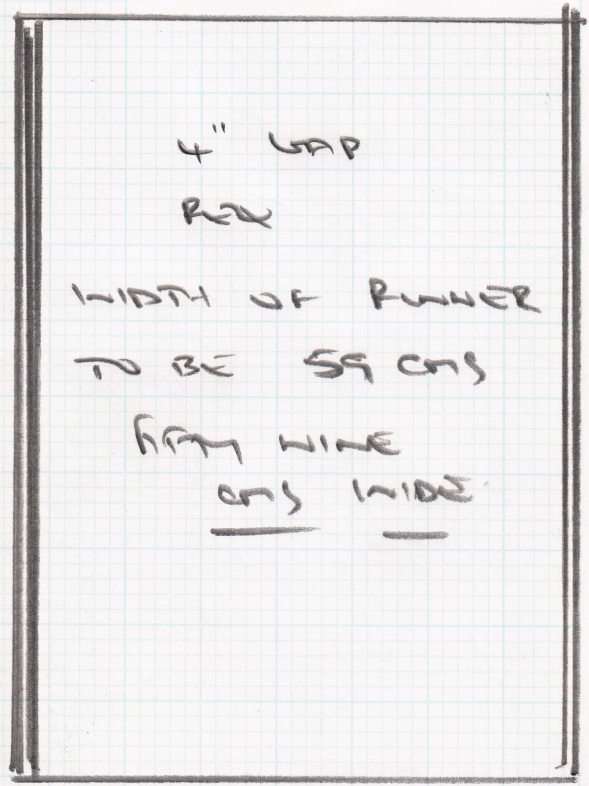 4" GAP
REX
WIDTH OF RUNNER
TO BE 59 CMS
FIFTY NINE
CMS WIDE